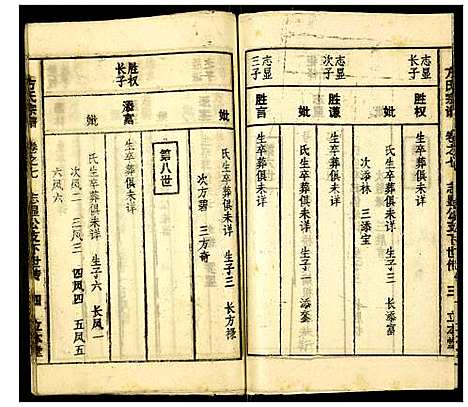 方氏宗谱 卷之七 志显公立下世传 三 立本堂
志显长子 胜权
生卒葬俱未详
妣
氏生卒葬俱未详 生子三 长添富
次添林 三添宝
志显次子 胜谦
生卒葬俱未详
妣
氏生卒葬俱未详 生子一 添銮
志显三子 胜言
生卒葬俱未详
妣
氏生卒葬俱未详 生子三 长方禄
次方碧 三方奇
第八世
胜权长子 添富
生卒葬俱未详
妣
氏生卒葬俱未详 生子六 长凤一
次凤二 三凤三 四凤四 五凤五
六凤六
方氏宗谱 卷之七 志显公立下世传 四 立本堂